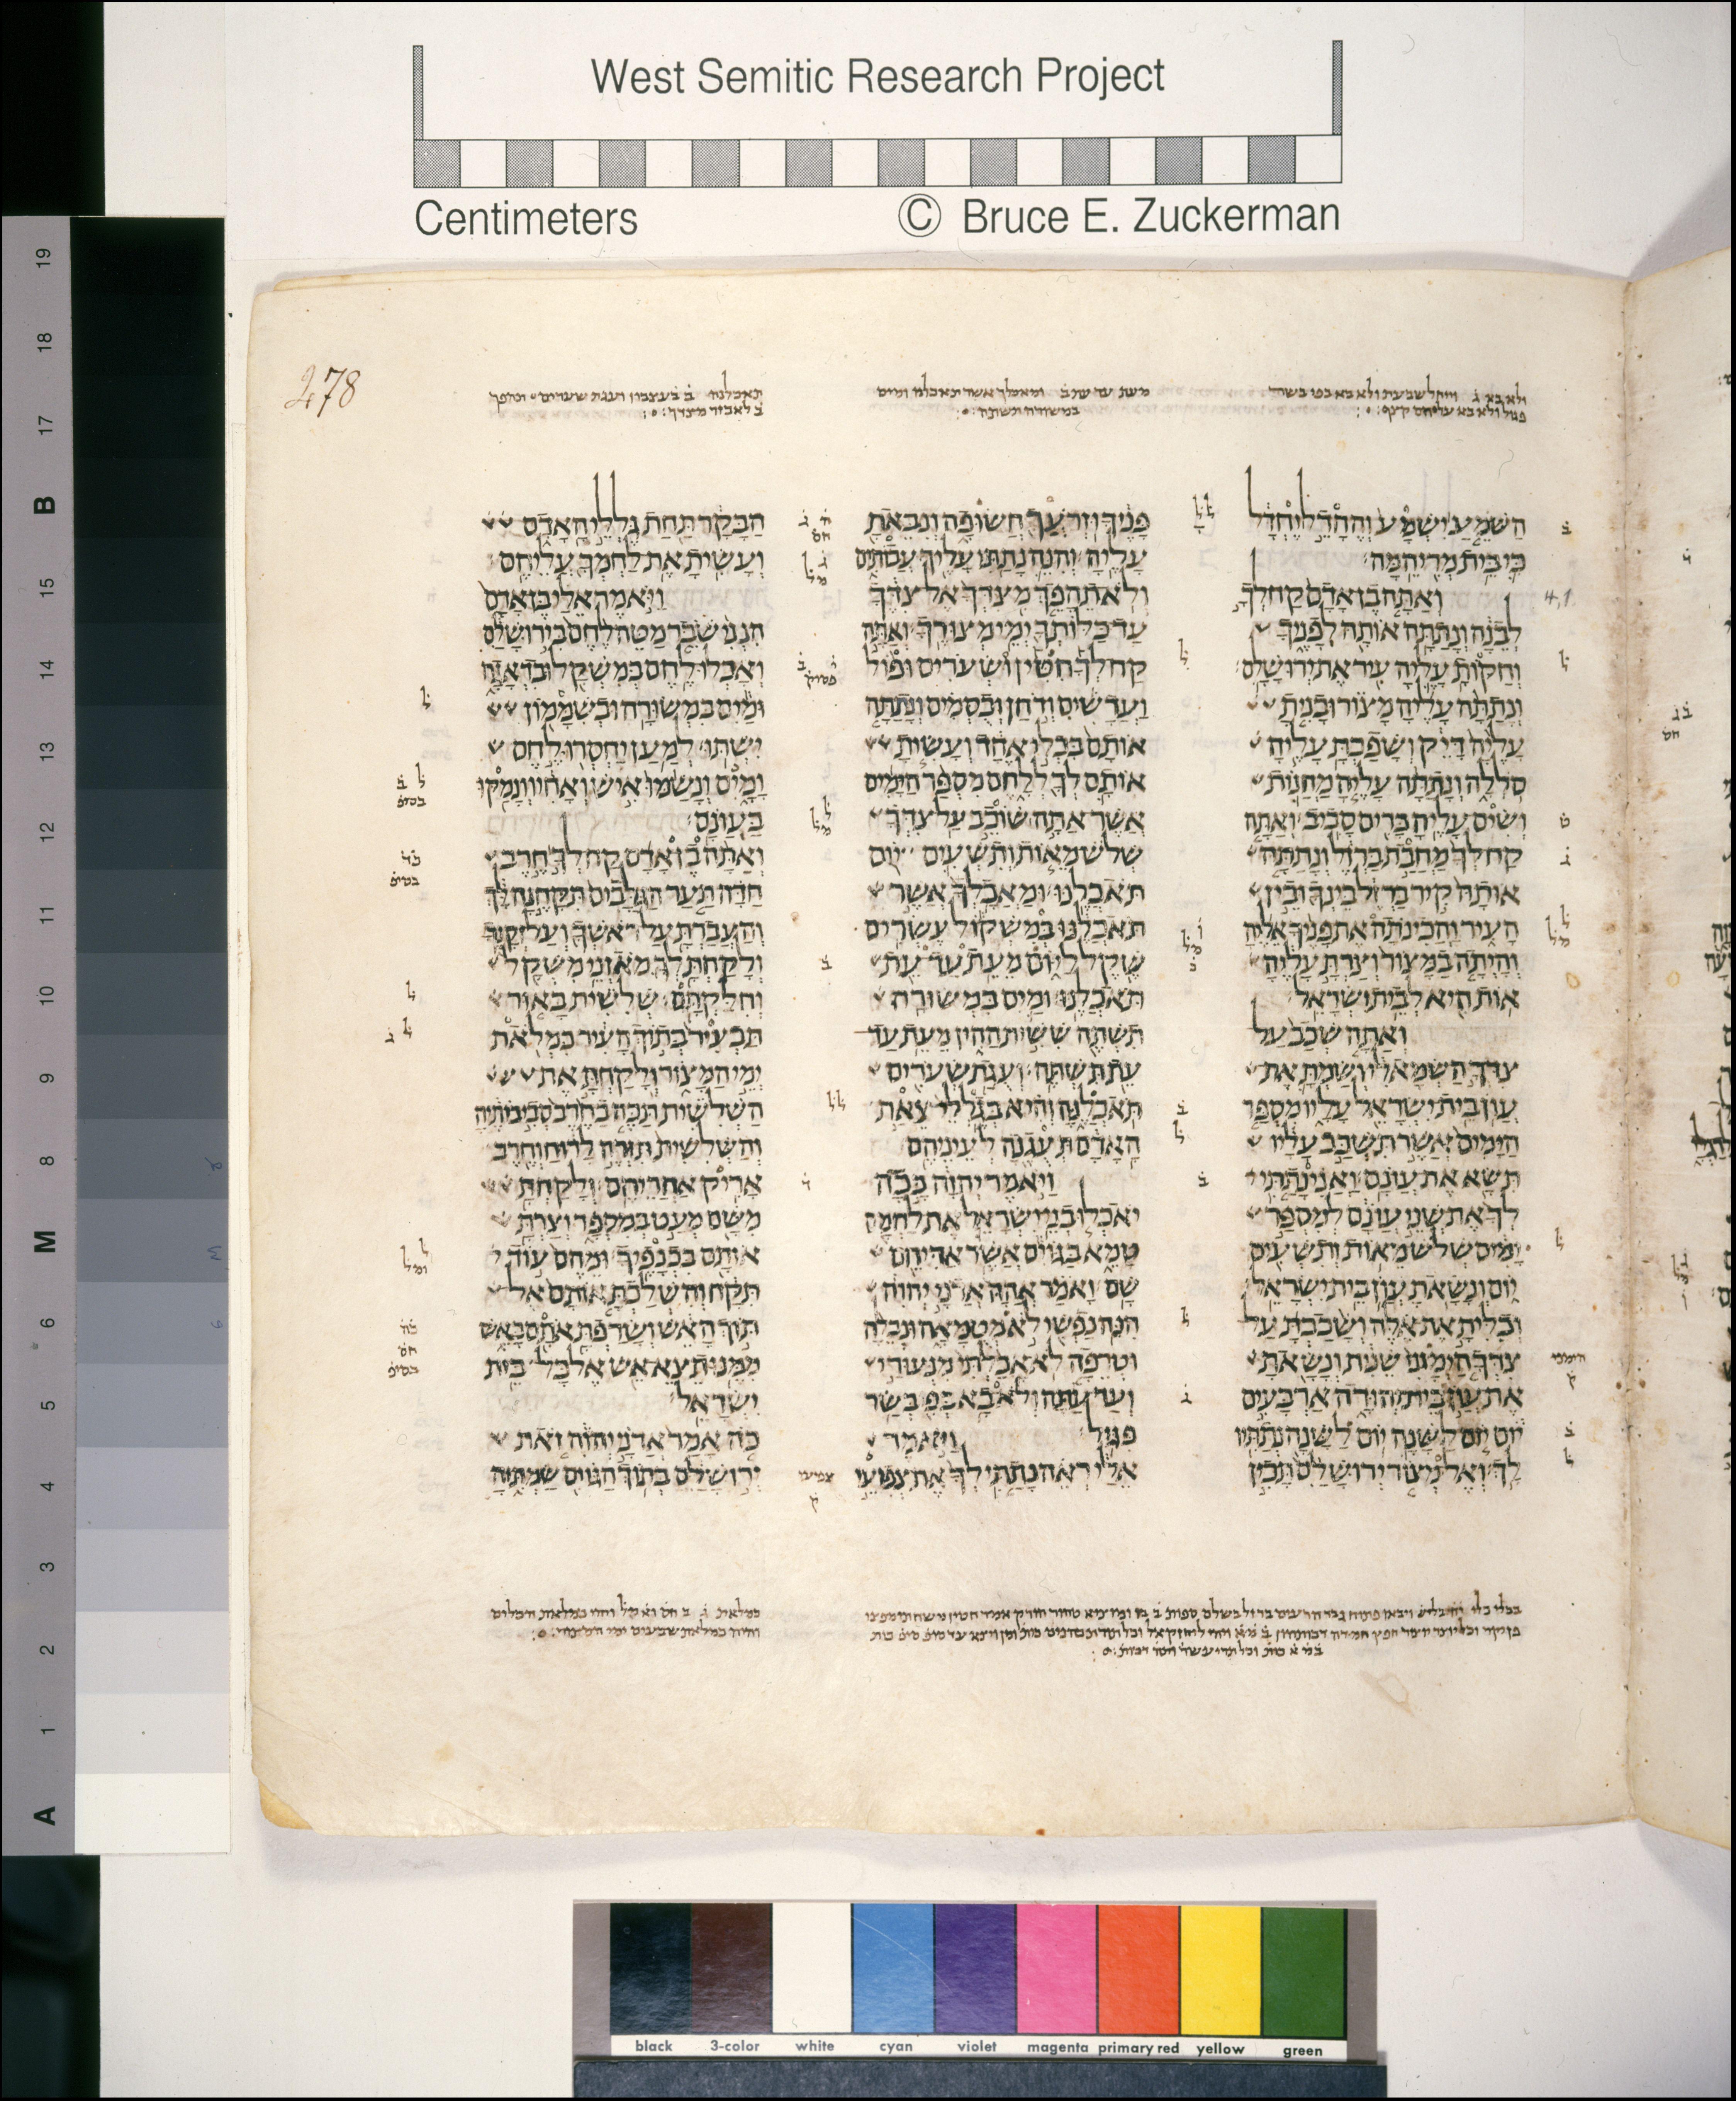 West Semitic Research Project
Centimeters © Bruce E. Zuckerman
278
הַשֹּׁמֵעַ יִשְׁמָע וְהֶחָדֵל יֶחְדָּל
כִּי בֵּית מְרִי הֵמָּה׃
וְאַתָּה בֶן אָדָם קַח לְךָ
לְבֵנָה וְנָתַתָּה אוֹתָהּ לְפָנֶיךָ
וְחַקּוֹתָ עָלֶיהָ עִיר אֶת יְרוּשָׁלִָם׃
וְנָתַתָּה עָלֶיהָ מָצוֹר וּבָנִיתָ
עָלֶיהָ דָּיֵק וְשָׁפַכְתָּ עָלֶיהָ
סֹלְלָה וְנָתַתָּה עָלֶיהָ מַחֲנוֹת
וְשִׂים עָלֶיהָ כָּרִים סָבִיב׃ וְאַתָּה
קַח לְךָ מַחֲבַת בַּרְזֶל וְנָתַתָּה
אוֹתָהּ קִיר בַּרְזֶל בֵּינְךָ וּבֵין
הָעִיר וַהֲכִינֹתָה אֶת פָּנֶיךָ אֵלֶיהָ
וְהָיְתָה בַמָּצוֹר וְצַרְתָּ עָלֶיהָ
אוֹת הִיא לְבֵית יִשְׂרָאֵל׃
וְאַתָּה שְׁכַב עַל
צִדְּךָ הַשְּׂמָאלִי וְשַׂמְתָּ אֶת
עֲוֺן בֵּית יִשְׂרָאֵל עָלָיו מִסְפַּר
הַיָּמִים אֲשֶׁר תִּשְׁכַּב עָלָיו
תִּשָּׂא אֶת עֲוֺנָם׃ וַאֲנִי נָתַתִּי
לְךָ אֶת שְׁנֵי עֲוֺנָם לְמִסְפַּר
יָמִים שְׁלֹשׁ מֵאוֹת וְתִשְׁעִים
יוֹם וְנָשָׂאתָ עֲוֺן בֵּית יִשְׂרָאֵל׃
וְכִלִּיתָ אֶת אֵלֶּה וְשָׁכַבְתָּ עַל
צִדְּךָ הַיְמָונִי שֵׁנִית וְנָשָׂאתָ
אֶת עֲוֺן בֵּית יְהוּדָה אַרְבָּעִים
יוֹם יוֹם לַשָּׁנָה יוֹם לַשָּׁנָה נְתַתִּיו
לָךְ׃ וְאֶל מְצוֹר יְרוּשָׁלִַם תָּכִין
פָּנֶיךָ וּזְרֹעֲךָ חֲשׂוּפָה וְנִבֵּאתָ
עָלֶיהָ׃ וְהִנֵּה נָתַתִּי עָלֶיךָ עֲבוֹתִים
וְלֹא תֵהָפֵךְ מִצִּדְּךָ אֶל צִדֶּךָ
עַד כַּלּוֹתְךָ יְמֵי מְצוּרֶךָ׃ וְאַתָּה
קַח לְךָ חִטִּין וּשְׂעֹרִים וּפוֹל
וַעֲדָשִׁים וְדֹחַן וְכֻסְּמִים וְנָתַתָּה
אוֹתָם בִּכְלִי אֶחָד וְעָשִׂיתָ
אוֹתָם לְךָ לְלָחֶם מִסְפַּר הַיָּמִים
אֲשֶׁר אַתָּה שׁוֹכֵב עַל צִדְּךָ
שְׁלֹשׁ מֵאוֹת וְתִשְׁעִים יוֹם
תֹּאכֲלֶנּוּ׃ וּמַאֲכָלְךָ אֲשֶׁר
תֹּאכֲלֶנּוּ בְּמִשְׁקוֹל עֶשְׂרִים
שֶׁקֶל לַיּוֹם מֵעֵת עַד עֵת
תֹּאכֲלֶנּוּ׃ וּמַיִם בִּמְשׂוּרָה
תִשְׁתֶּה שִׁשִּׁית הַהִין מֵעֵת עַד
עֵת תִּשְׁתֶּה׃ וְעֻגַת שְׂעֹרִים
תֹּאכֲלֶנָּה וְהִיא בְּגֶלְלֵי צֵאַת
הָאָדָם תְּעֻגֶנָה לְעֵינֵיהֶם׃
וַיֹּאמֶר יְהוָה כָּכָה
יֹאכְלוּ בְנֵי יִשְׂרָאֵל אֶת לַחְמָם
טָמֵא בַּגּוֹיִם אֲשֶׁר אַדִּיחֵם
שָׁם׃ וָאֹמַר אֲהָהּ אֲדֹנָי יְהוִה
הִנֵּה נַפְשִׁי לֹא מְטֻמָּאָה וּנְבֵלָה
וּטְרֵפָה לֹא אָכַלְתִּי מִנְּעוּרַי
וְעַד עַתָּה וְלֹא בָא בְּפִי בְּשַׂר
פִּגּוּל׃ וַיֹּאמֶר
אֵלַי רְאֵה נָתַתִּי לְךָ אֶת צְפִועֵי
הַבָּקָר תַּחַת גֶּלְלֵי הָאָדָם
וְעָשִׂיתָ אֶת לַחְמְךָ עֲלֵיהֶם׃
וַיֹּאמֶר אֵלַי בֶּן אָדָם
הִנְנִי שֹׁבֵר מַטֵּה לֶחֶם בִּירוּשָׁלִַם
וְאָכְלוּ לֶחֶם בְּמִשְׁקָל וּבִדְאָגָה
וּמַיִם בִּמְשׂוּרָה וּבְשִׁמָּמוֹן
יִשְׁתּוּ׃ לְמַעַן יַחְסְרוּ לֶחֶם
וָמָיִם וְנָשַׁמּוּ אִישׁ וְאָחִיו וְנָמַקּוּ
בַּעֲוֺנָם׃
וְאַתָּה בֶן אָדָם קַח לְךָ חֶרֶב
חַדָּה תַּעַר הַגַּלָּבִים תִּקָּחֶנָּה לָּךְ
וְהַעֲבַרְתָּ עַל רֹאשְׁךָ וְעַל זְקָנֶךָ
וְלָקַחְתָּ לְךָ מֹאזְנֵי מִשְׁקָל
וְחִלַּקְתָּם׃ שְׁלִשִׁית בָּאוּר
תַּבְעִיר בְּתוֹךְ הָעִיר כִּמְלֹאת
יְמֵי הַמָּצוֹר וְלָקַחְתָּ אֶת
הַשְּׁלִשִׁית תַּכֶּה בַחֶרֶב סְבִיבוֹתֶיהָ
וְהַשְּׁלִשִׁית תִּזְרֶה לָרוּחַ וְחֶרֶב
אָרִיק אַחֲרֵיהֶם׃ וְלָקַחְתָּ
מִשָּׁם מְעַט בְּמִסְפָּר וְצַרְתָּ
אוֹתָם בִּכְנָפֶיךָ׃ וּמֵהֶם עוֹד
תִּקָּח וְהִשְׁלַכְתָּ אוֹתָם אֶל
תּוֹךְ הָאֵשׁ וְשָׂרַפְתָּ אֹתָם בָּאֵשׁ
מִמֶּנּוּ תֵצֵא אֵשׁ אֶל כָּל בֵּית
יִשְׂרָאֵל׃
כֹּה אָמַר אֲדֹנָי יְהוִה זֹאת
יְרוּשָׁלִַם בְּתוֹךְ הַגּוֹיִם שַׂמְתִּיהָ
19
18
17
B
15
14
13
12
11
10
9
8
M
6
5
4
3
2
1
A
black 3-color white cyan violet magenta primary red yellow green